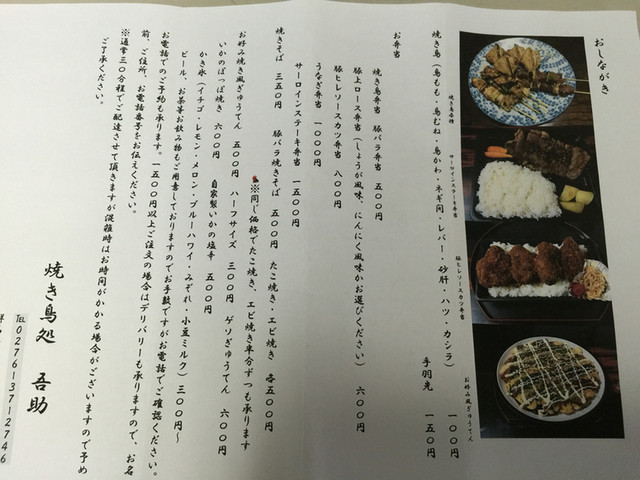 おしながき
焼き鳥各種
サーロインステーキ弁当
豚ヒレソースカツ弁当
お好み風ぎゅうてん
焼き鳥（鳥もも・鳥むね・鳥かわ・ネギ間・レバー・砂肝・ハツ・カシラ） 一〇〇円
手羽先 一五〇円
お弁当
焼き鳥弁当 豚バラ弁当 五〇〇円
豚上ロース弁当（しょうが風味、にんにく風味かお選びください） 六〇〇円
豚ヒレソースカツ弁当 八〇〇円
うなぎ弁当 一〇〇〇円
サーロインステーキ弁当 一五〇〇円
焼きそば 三五〇円 豚バラ焼きそば 五〇〇円 たこ焼き・エビ焼き 各五〇〇円
※同じ価格でたこ焼き、エビ焼き半分ずつも承ります
お好み焼き風ぎゅうてん 五〇〇円 ハーフサイズ 三〇〇円 ゲソぎゅうてん 六〇〇円
いかのぽっぽ焼き 六〇〇円 自家製いかの塩辛 五〇〇円
かき氷（イチゴ・レモン・メロン・ブルーハワイ・みぞれ・小豆ミルク）三〇〇円〜
ビール、お茶等お飲み物もご用意しておりますのでお手数ですがお電話でご確認ください。
お電話でのご予約も承ります。一五〇〇円以上ご注文の場合はデリバリーも承りますので、お名
前、ご住所、お電話番号をお伝えください。
※通常三〇分程でご配達させて頂きますが混雑時はお時間がかかる場合がございますので予め
ご了承ください。
焼き鳥処 吾助
TEL 0276137-2746